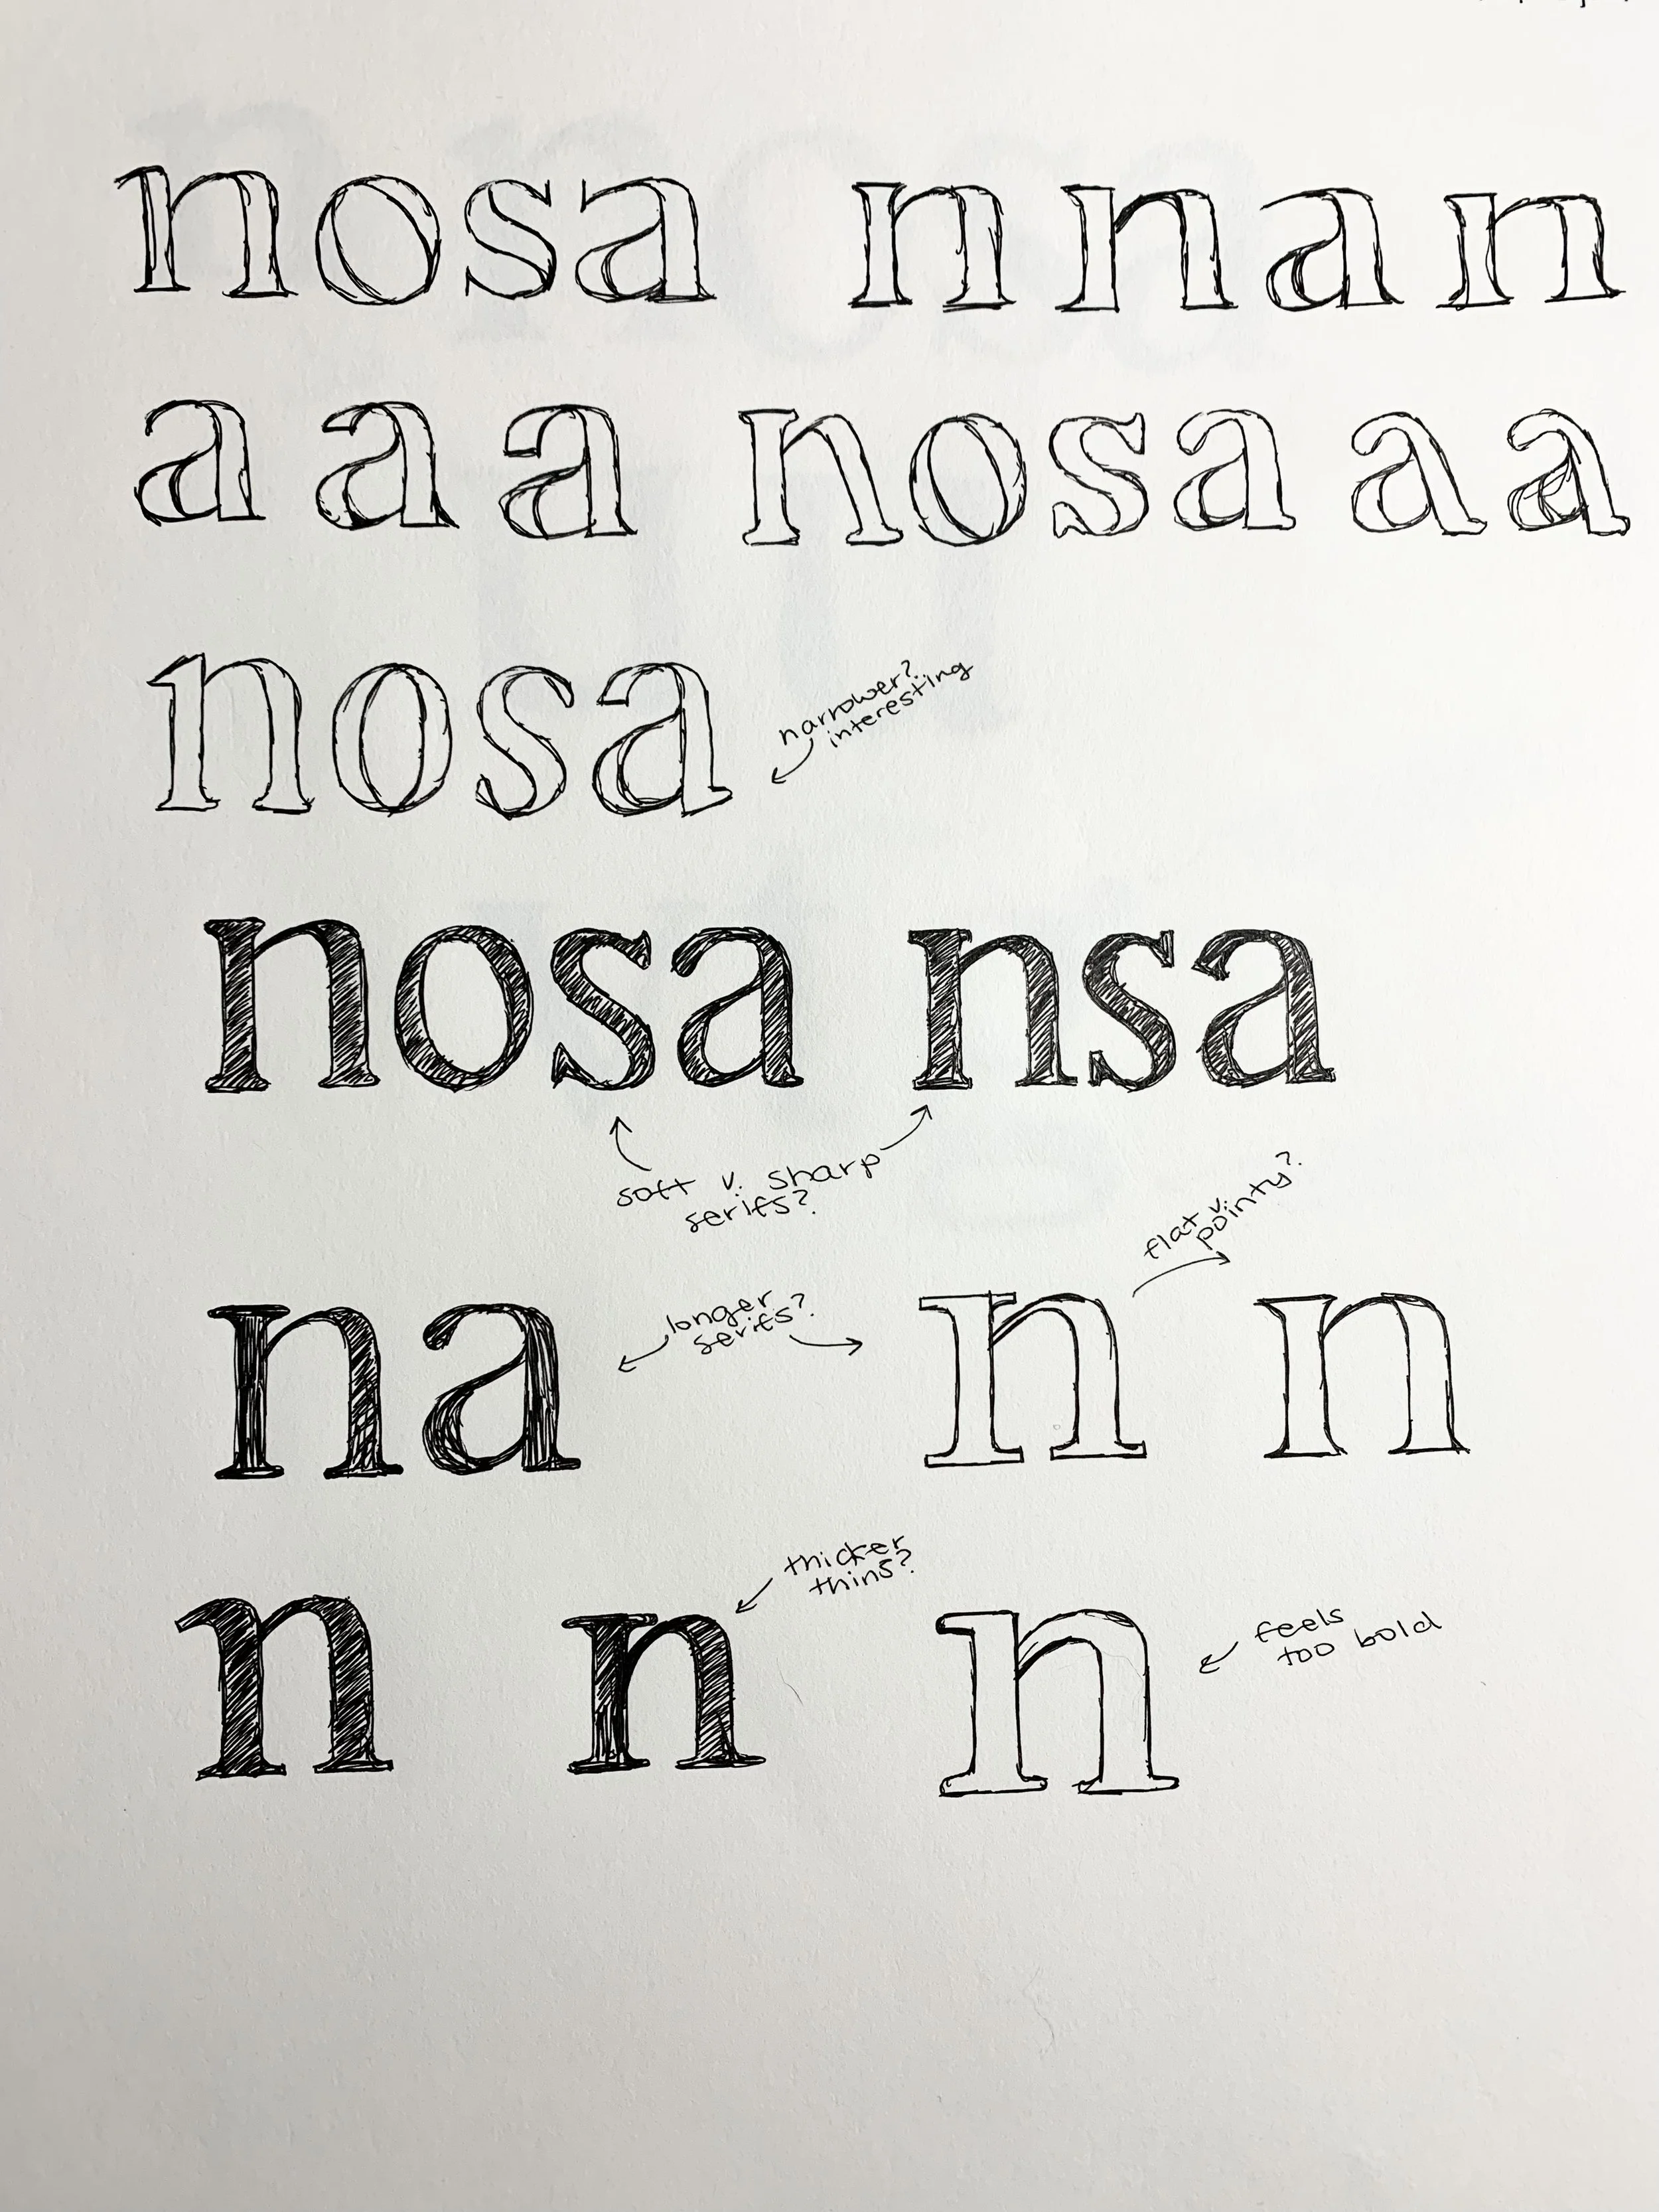 nosa n n a n
a a a nosa a a
nosa
narrower?
interesting
nosa nsa
soft v. sharp
serifs?
flat v.
pointy?
na
longer
serifs?
n n
thicker
thins?
n n n
feels
too bold